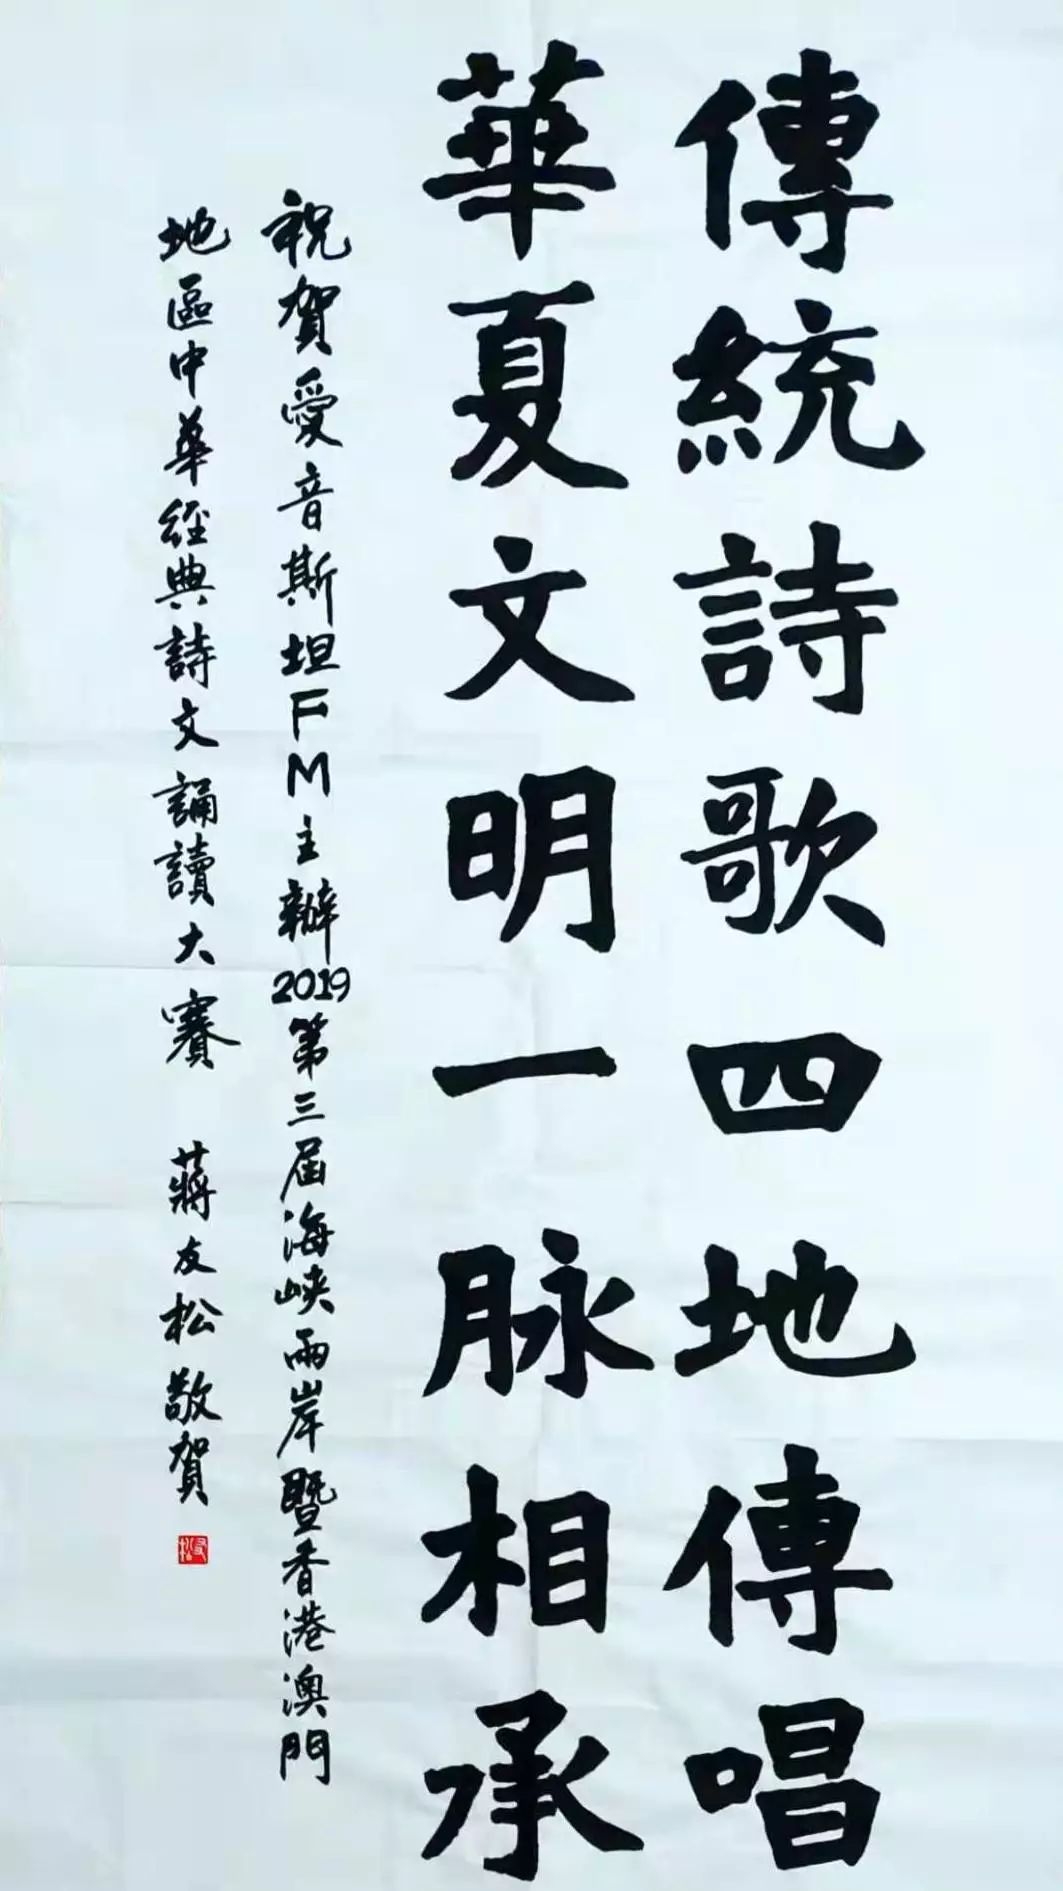 傳統詩歌四地傳唱
華夏文明一脉相承
祝賀愛音斯坦FM主辦2019第三届海峽兩岸暨香港澳門
地區中華經典詩文誦讀大賽 蔣友松敬賀
友松